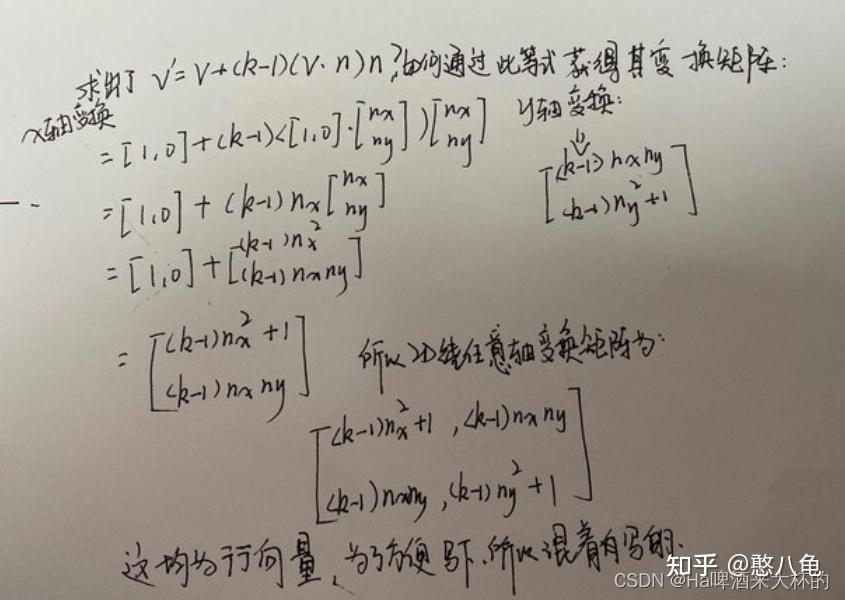 求出了 V'=V+(k-1)(V·n)n,如何通过此等式获得其变换矩阵:
x轴变换
=[1,0]+(k-1)<[1,0]·[nx ny])[nx ny]
y轴变换:
=[1,0]+(k-1)nx[nx ny]
[(k-1)nxny
(k-1)ny²+1]
=[1,0]+[(k-1)nx²
(k-1)nxny]
=[(k-1)nx²+1
(k-1)nxny]
所以2D绕任意轴变换矩阵为:
[(k-1)nx²+1,(k-1)nxny
(k-1)nxny,(k-1)ny²+1]
这均为行向量,为了方便写下,所以混着有写的.
知乎 @憨八龟
CSDN @Ha啤酒来大杯的